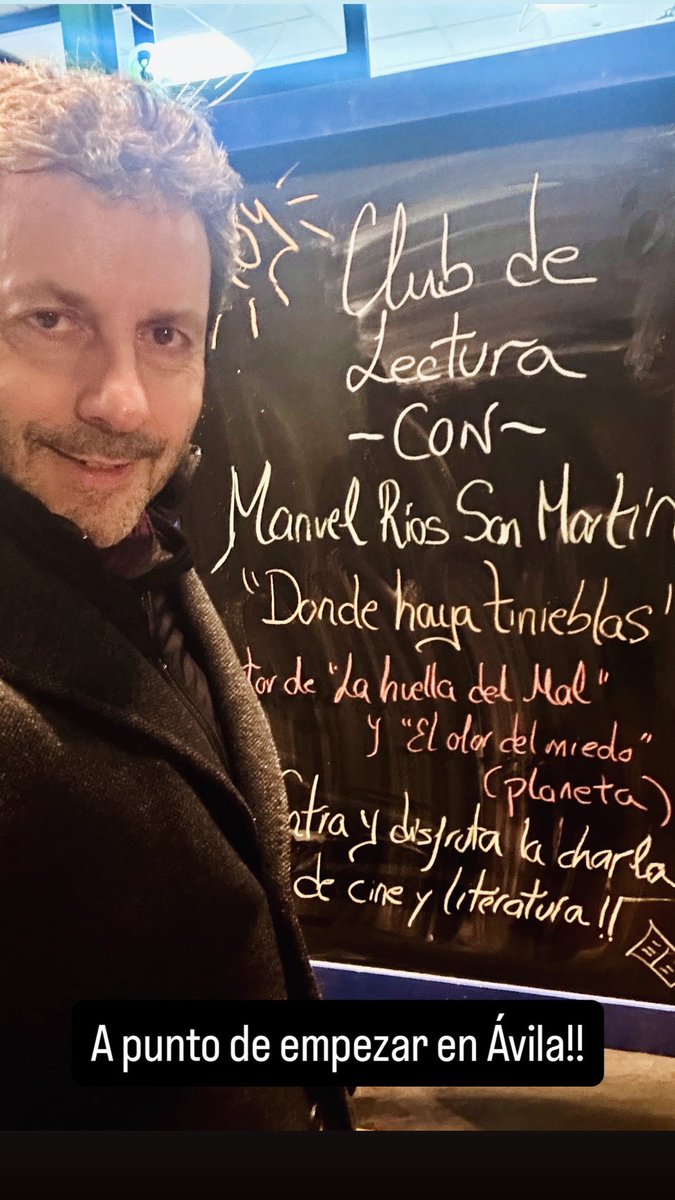 Club de
Lectura
~CON~
Manuel Ríos San Martín
"Donde haya tinieblas"
tor de "La huella del Mal"
y "El olor del miedo"
(planeta)
ntra y disfruta la charla
de cine y literatura!!
A punto de empezar en Ávila!!